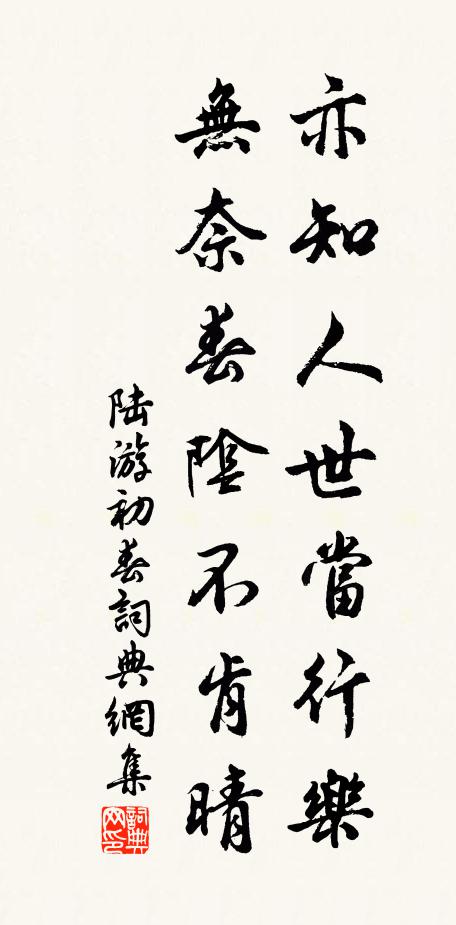 亦知人世當行樂
無奈春陰不肯晴
陆游初春詞典網集
詞典网印